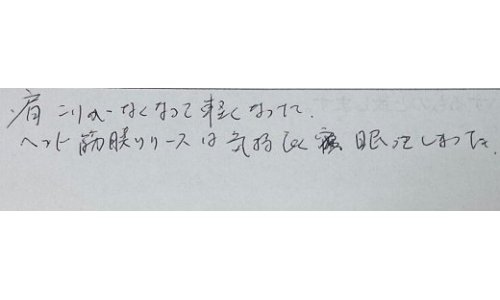 ・肩こりがなくなって軽くなった。
ヘット筋膜リリースは気持よく眠ってしまった。